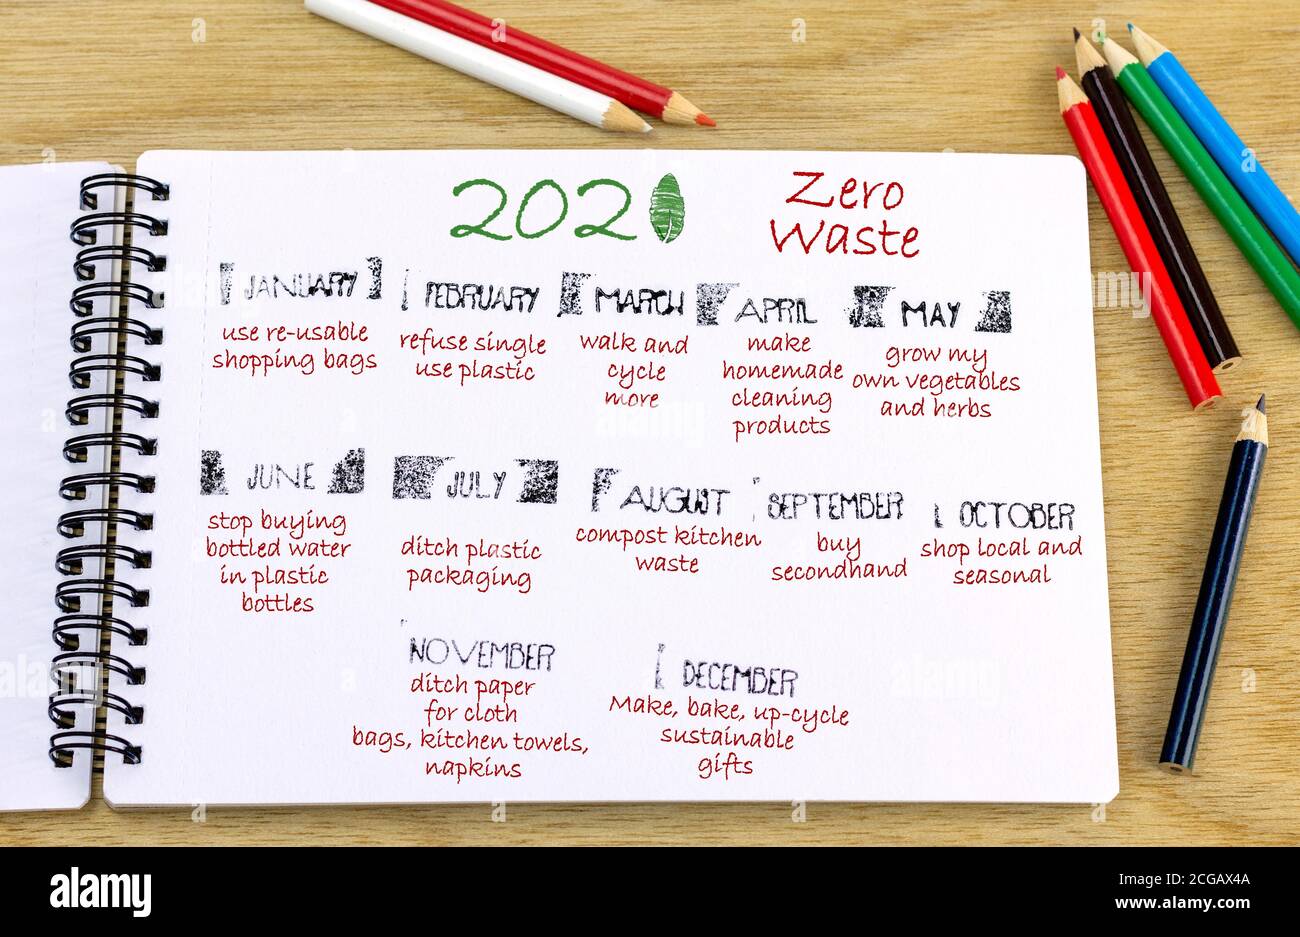 202
Zero
Waste
JANUARY
use re-usable
shopping bags
FEBRUARY
refuse single
use plastic
MARCH
walk and
cycle
more
APRIL
make
homemade
cleaning
products
MAY
grow my
own vegetables
and herbs
JUNE
stop buying
bottled water
in plastic
bottles
JULY
ditch plastic
packaging
AUGUST
compost kitchen
waste
SEPTEMBER
buy
secondhand
OCTOBER
shop local and
seasonal
NOVEMBER
ditch paper
for cloth
bags, kitchen towels,
napkins
DECEMBER
Make, bake, up-cycle
sustainable
gifts
alamy
Image ID: 2CGAX4A
www.alamy.com